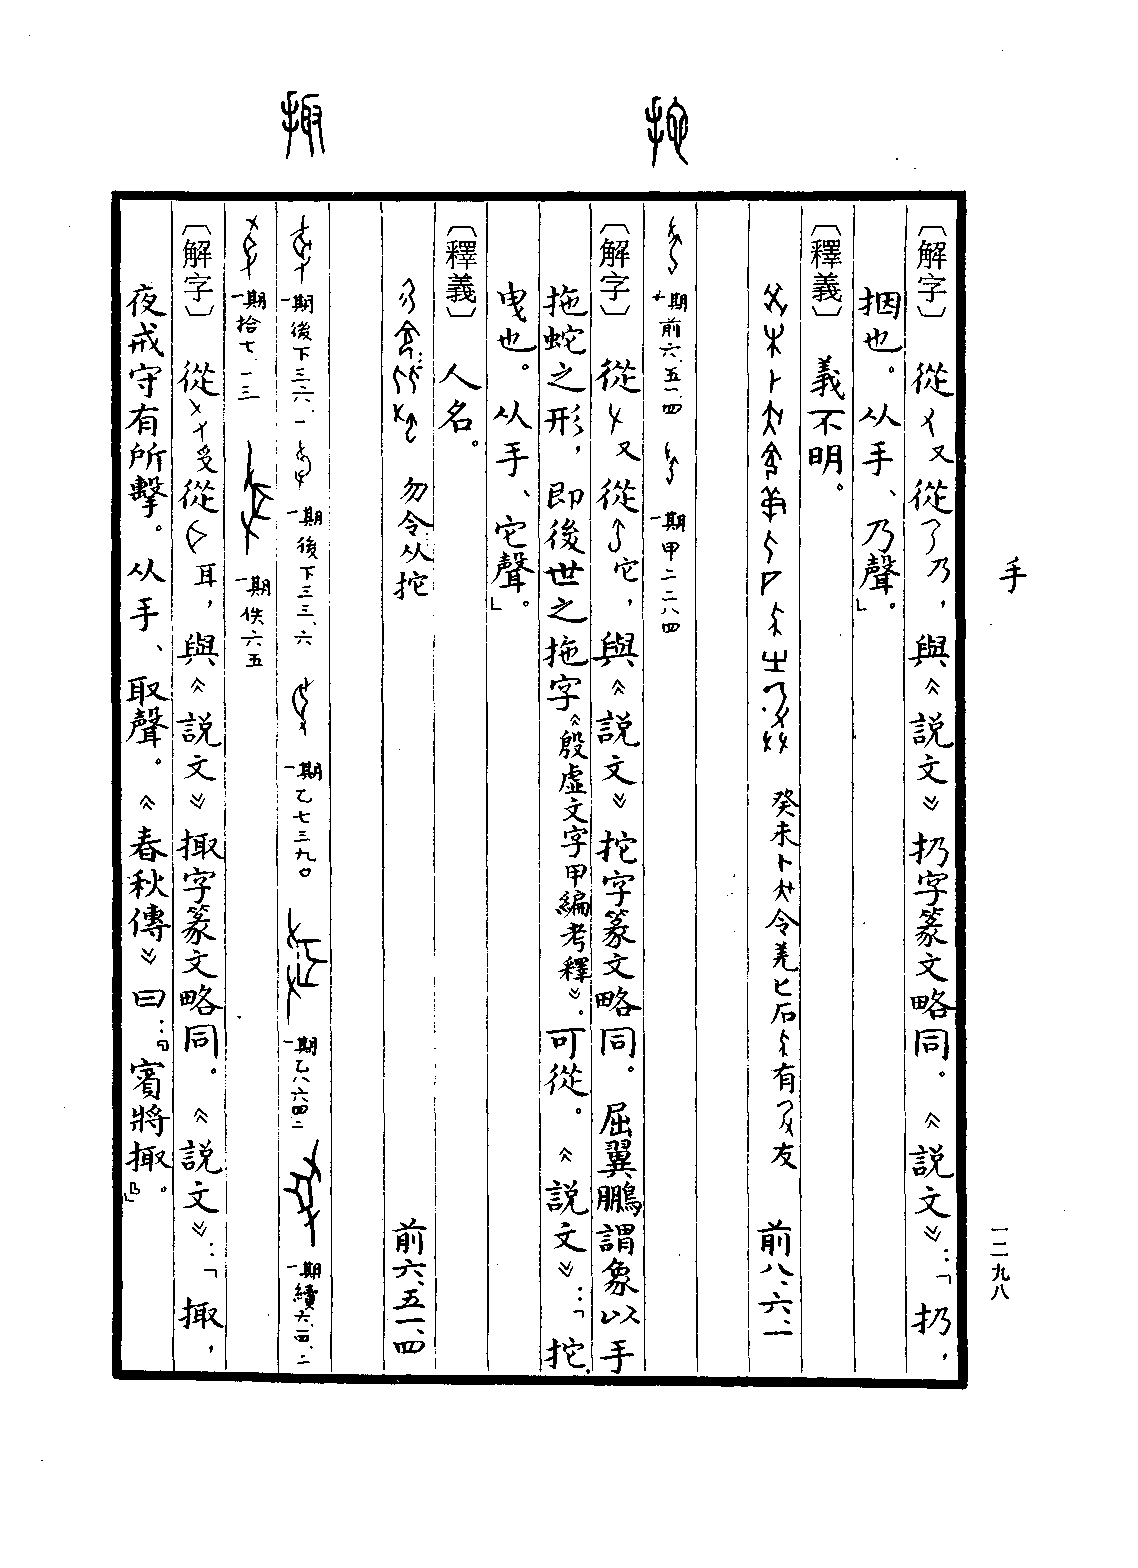 手
一二九八
〔解字〕從又從乃，與《說文》扔字篆文略同。《說文》：「扔，
捆也。从手、乃聲。」
〔釋義〕義不明。
癸未卜令羌匕后有友 前八、六、一
拕
一期前六、五一、四 一期甲二二八四
〔解字〕從又從它，與《說文》拕字篆文略同。屈翼鵬謂象以手
拖蛇之形，即後世之拖字《殷虛文字甲編考釋》。可從。《說文》：「拕，
曳也。从手、它聲。」
〔釋義〕人名。
勿令从拕 前六、五一、四
掫
一期後下三六、一 一期後下三三、六 一期乙七三九〇 一期乙八六四二 一期續六、二
一期拾七、一三 一期佚六五
〔解字〕從受從耳，與《說文》掫字篆文略同。《說文》：「掫，
夜戒守有所擊。从手、取聲。《春秋傳》曰：『賓將掫。』」